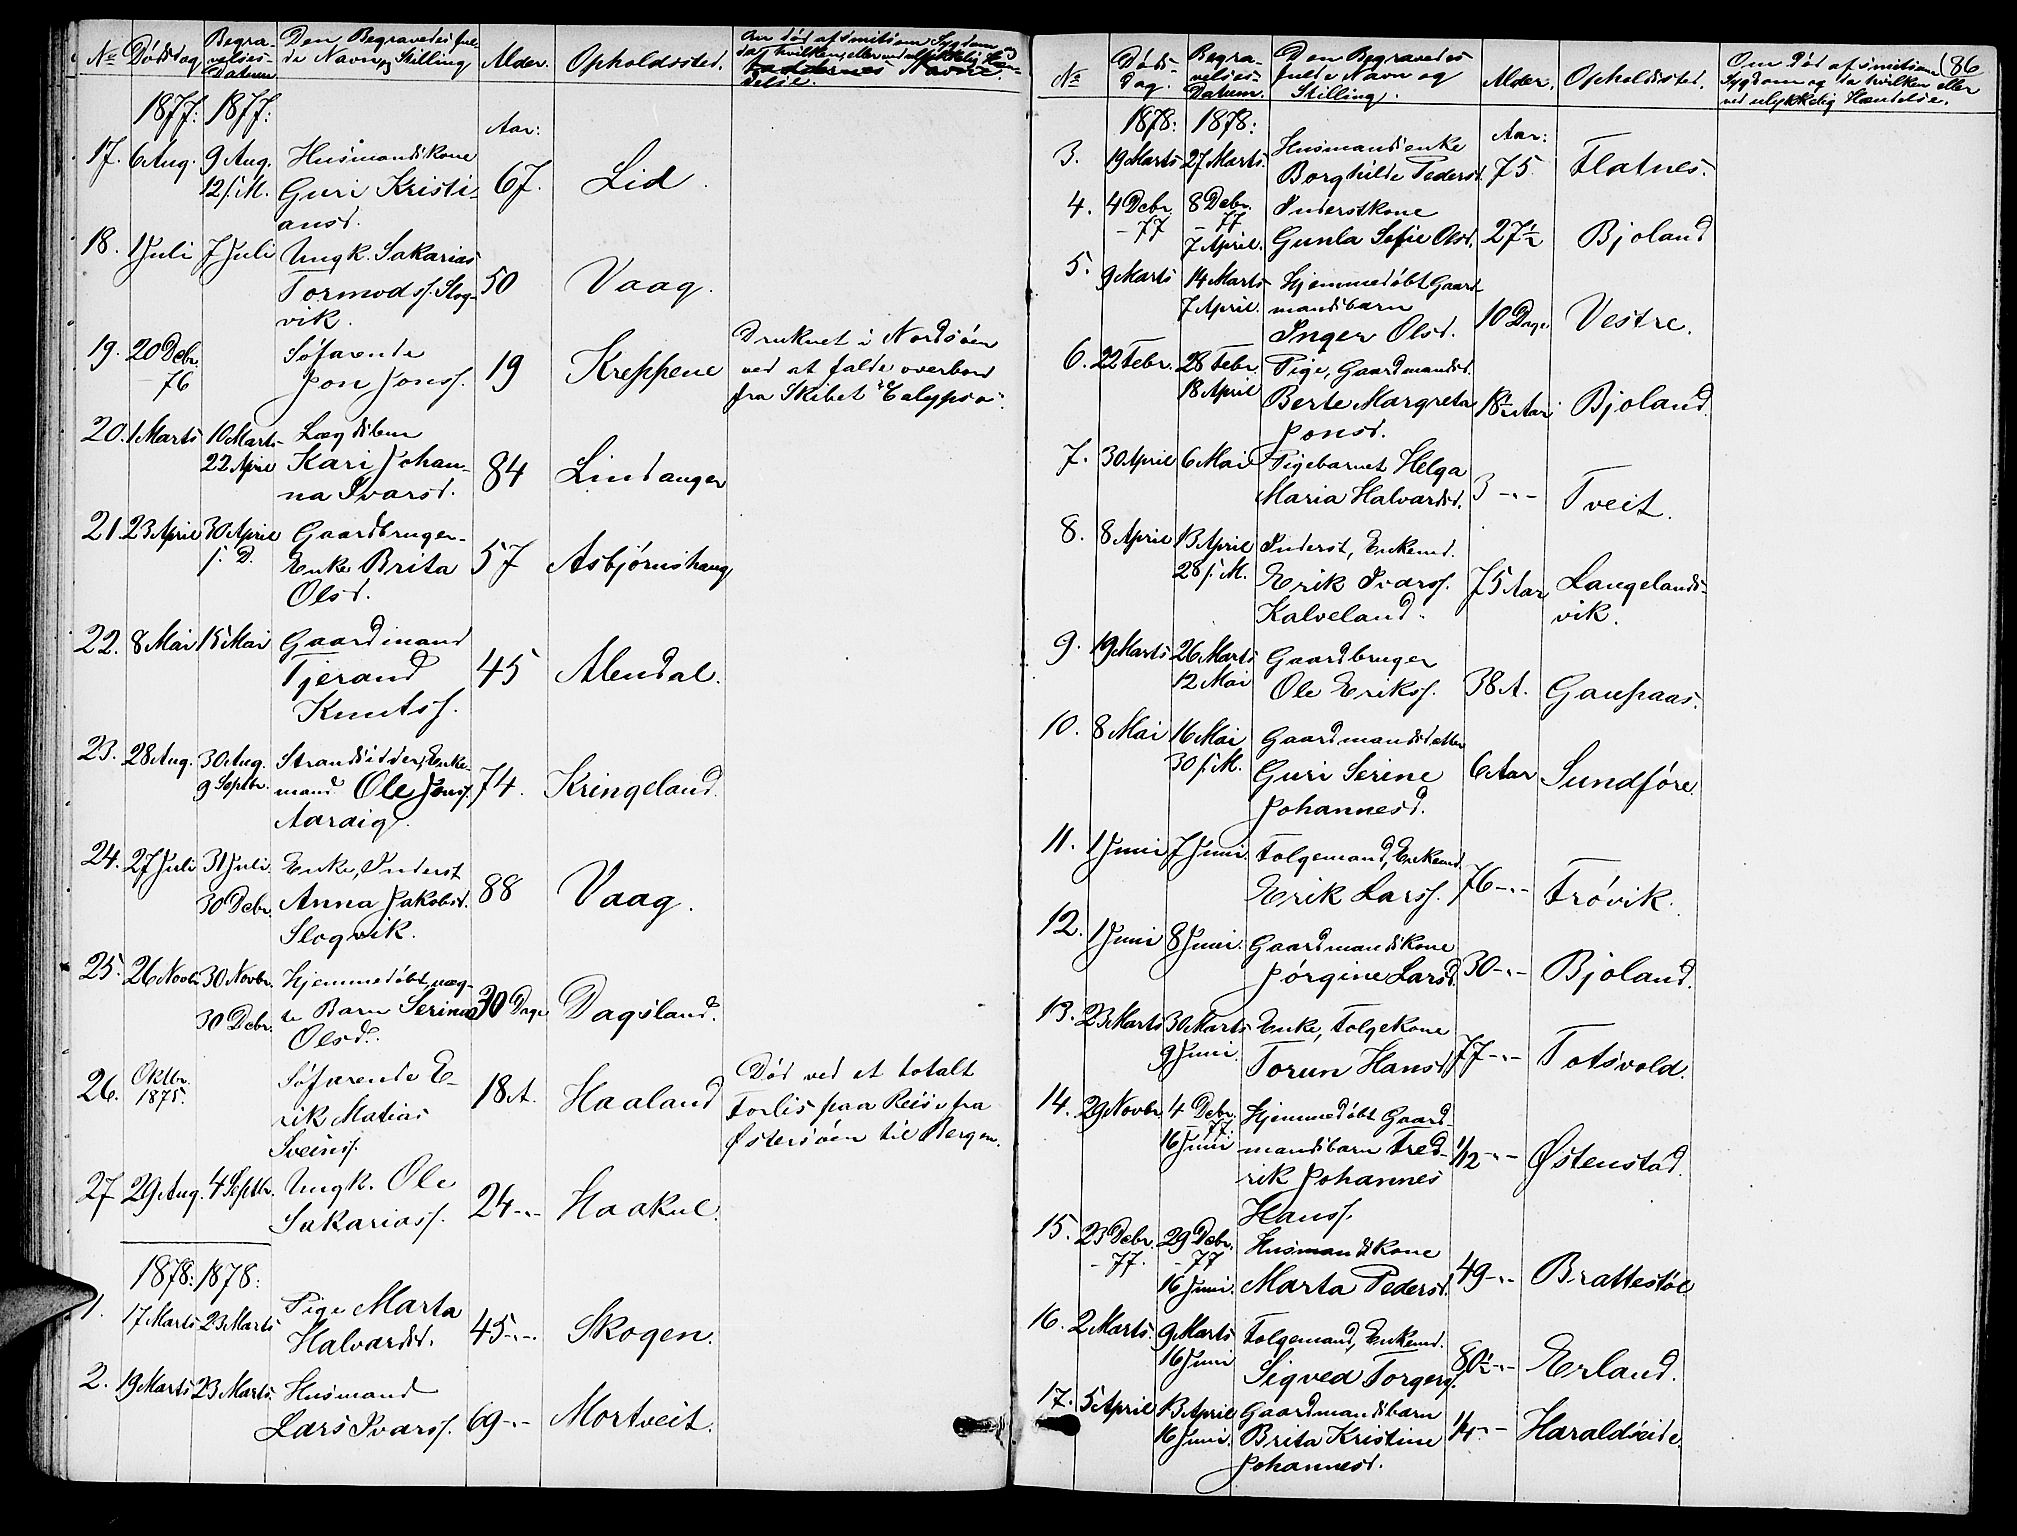 No Dødsdag Begravelses-Datum Den Begravedes fulde Navn og Stilling Alder. Opholdssted. Om død af smitsom Sygdom og da hvilken, eller ved ulykkelig Hændelse.
1877: 1877: Aar:
17. 6 Aug. 9 Aug. Husmandskone
12 s. M. Guri Kristi- 67. Lid.
ansd.
18. 1 Juli 7 Juli Ungk. Sakarias
Tormodss. Slog- 50 Vaag.
vik.
19. 20 Debr. Søfarende Druknet i Nordsøen
-76 Jon Jonss. 19 Kreppene ved at falde overbord
fra Skibet "Calypso".
20. 1 Marts 10 Marts Lægdslem
22 April Kari Johan- 84 Lindanger
na Ivarsd.
21. 23 April 30 April Gaardbruger-
s. D. Enke Brita 57 Asbjørnshaug
Olsd.
22. 8 Mai 15 Mai Gaardmand
Tjerand 45 Alendal.
Knutss.
23. 28 Aug. 30 Aug. Strandsidder, Enke-
9 Septbr. mand Ole Jonss. 74. Kringeland.
Aaraig.
24. 27 Juli 31 Juli. Enke, Inderst
30 Debr. Anna Jakobsd. 88 Vaag.
Slogvik.
25. 26 Novbr. 30 Novbr. Hjemmedøbt, uæg-
30 Debr. te Barn Serina 30 Dage Dagsland.
Olsd.
26. Oktbr. Søfarende E- Død ved et totalt
1875. rik Matias 18 A. Haaland Forlis paa Reise fra
Sveinss. Østersøen til Bergen.
27 29 Aug. 4 Septbr. Ungk. Ole
Sakariass. 24-"- Haakul.
1878: 1878:
1. 17 Marts 23 Marts Pige Marta
Halvardsd. 45-"- Skogen.
2. 19 Marts 23 Marts. Husmand
Lars Ivarss. 69-"- Mortveit.
No Døds-Dag. Begravelses-Datum. Den Begravedes fulde Navn og Stilling. Alder. Opholdssted. Om Død af smitsom Sygdom og da hvilken eller ved ulykkelig Hændelse. 86
1878: 1878: Aar:
3. 19 Marts 27 Marts. Husmandsenke
Borghilde Pedersd. 75. Flatnes.
4. 4 Debr. 8 Debr. Inderstkone
-77 -77
7 April. Gunla Sofie Olsd. 27½ Bjoland
5. 9 Marts 14 Marts Hjemmedøbt Gaard-
7 April. mandsbarn
Inger Olsd. 10 Dage Vestre.
6. 22 Febr. 28 Febr. Pige, Gaardmandsd.
18 April Berte Margreta 18½ Aar Bjoland.
Jonsd.
7. 30 April 6 Mai Pigebarnet Helga
Maria Halvardsd. 3-"- Tveit.
8. 8 April 13 April Inderst, Enkemd.
28 s. M. Erik Ivarss. 75 Aar Langelands-
Kalveland. vik.
9. 19 Marts 26 Marts Gaardbruger
12 Mai Ole Erikss. 38 A. Gaupaas.
10. 8 Mai 16 Mai Gaardmandsdatter
30 s. M. Guri Serine 6 Aar Sundføre.
Johannesd.
11. 1 Juni 7 Juni. Folgemand, Enkemd.
Erik Larss. 76-"- Frøvik.
12. 1 Juni 8 Juni. Gaardmandskone
Jørgine Larsd. 30-"- Bjoland.
13. 23 Marts 30 Marts Enke, Folgekone
9 Juni. Torun Hansd. 77-"- Totsvold.
14. 29 Novbr. 4 Debr. Hjemmedøbt Gaard-
-77.
16 Juni mandsbarn Fred- 1/12-"- Østenstad.
rik Johannes
Hanss.
15. 23 Debr. 29 Debr. Husmandskone
-77. -77
16 Juni. Marta Pedersd. 49-"- Brattestøl
16. 2 Marts. 9 Marts Folgemand, Enkemd.
16 Juni Sigved Torgerss. 80½-"- Erland.
17. 5 April 13 April Gaardmandsbarn
16 Juni. Brita Kristine 1/4-"- Haraldseide.
Johannesd.